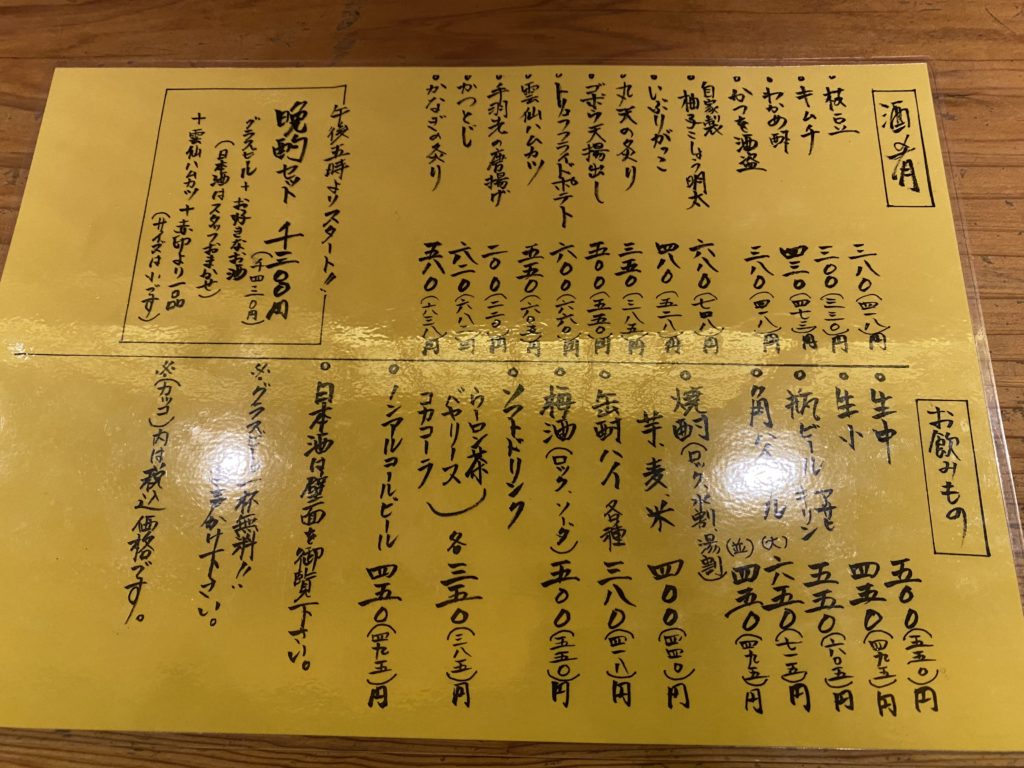 酒肴
・枝豆 三八〇(四一八)円
・キムチ 三〇〇(三三〇)円
・わかめ酢 四三〇(四七三)円
・かつを酒盗 三八〇(四一八)円
自家製
・柚子こしょう明太 六八〇(七四八)円
・いぶりがっこ 四八〇(五二八)円
・丸天の炙り 三五〇(三八五)円
・ゴボウ天揚出し 五〇〇(五五〇)円
・トリュフフライドポテト 六〇〇(六六〇)円
・雲仙ハムカツ 五五〇(六〇五)円
・手羽先の唐揚げ 二〇〇(二二〇)円
・かつとじ 六二〇(六八二)円
・かなぎの炙り 五八〇(六三八)円
午後五時よりスタート!!
晩酌セット 千三〇〇円
(千四三〇円)
グラスビール+お好きなお酒
(日本酒はスタッフおまかせ)
+雲仙ハムカツ+赤印より一品
(サイズは小です)
お飲みもの
○生中 五〇〇(五五〇)円
○生小 四五〇(四九五)円
○瓶ビール キリン アサヒ 五五〇(六〇五)円
(大) 六五〇(七一五)円
○角ハイボール (並) 四五〇(四九五)円
○焼酎(ロック、水割、湯割)
芋、麦、米 四〇〇(四四〇)円
○缶酎ハイ 各種 三八〇(四一八)円
○梅酒(ロック、ソーダ) 五〇〇(五五〇)円
○ソフトドリンク
(ウーロン茶
バヤリース 各 三五〇(三八五)円
コカコーラ)
○ノンアルコールビール 四五〇(四九五)円
○日本酒は壁面を御覧下さい。
※グラス 一杯無料!!
声かけ下さい。
※(カッコ)内は税込価格です。